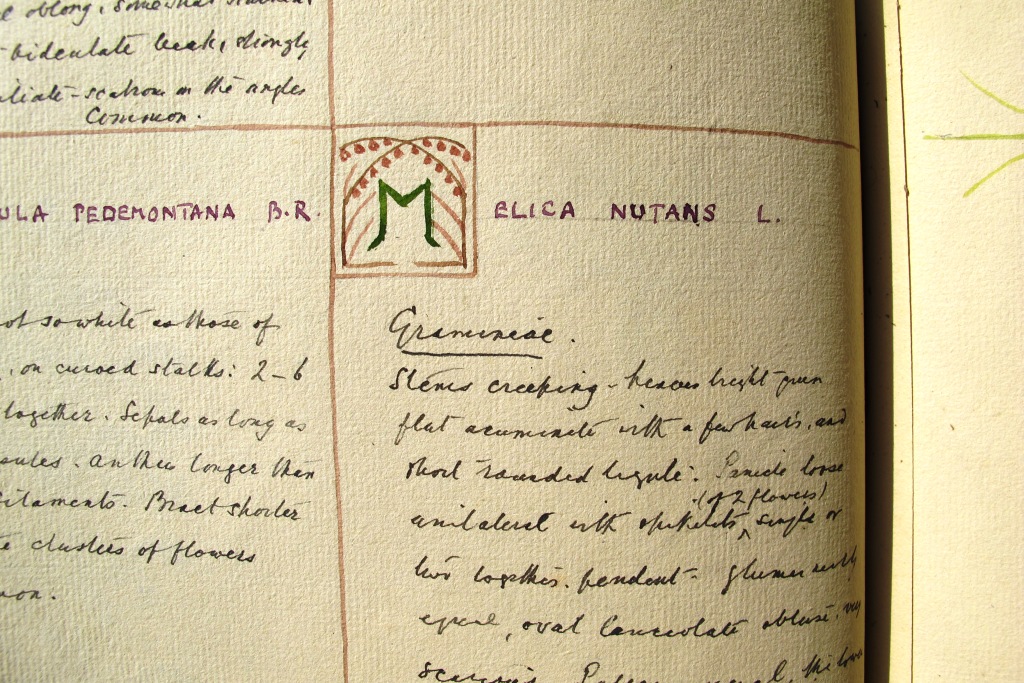 oblong, somewhat
bidentate beak, strongly
ciliate-scabrous on the angles
Common.
ULA PEDEMONTANA B.R.
not so white as those of
, on curved stalks: 2-6
together. Sepals as long as
anther longer than
filaments. Bract shorter
clusters of flowers
MELICA NUTANS L.
Gramineae.
Stems creeping - leaves bright green
flat acuminate with a few hairs, and
short rounded ligule: Panicle loose
(of 2 flowers)
unilateral with spikelets, single or
two together. pendent - glumes nearly
equal, oval lanceolate obtuse, very
the lower